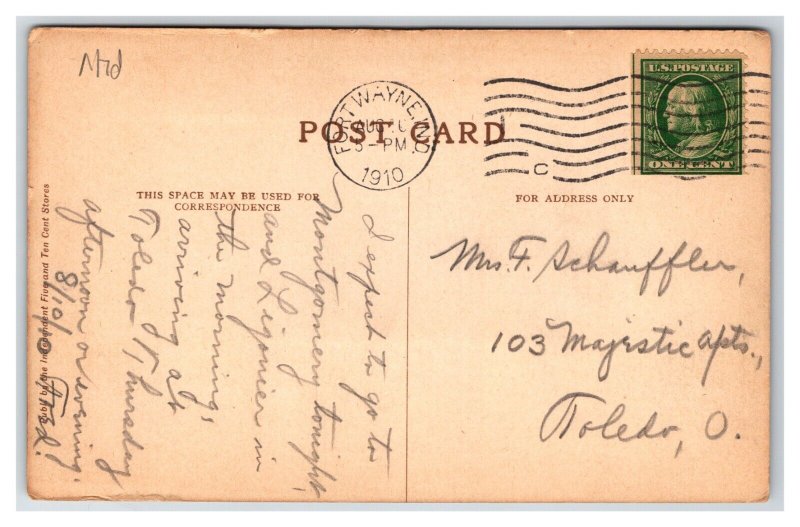 Mrd
U.S. POSTAGE
ONE CENT
FORT WAYNE, IND.
AUG 10
5-PM
1910
C
POST CARD
THIS SPACE MAY BE USED FOR
CORRESPONDENCE
FOR ADDRESS ONLY
I expect to go to
Montgomery tonight,
and Ligonier in
the morning,
arriving at
Toledo Thursday
afternoon or evening.
8/10/10
Publ. by the Independent Five and Ten Cent Stores
Mrs. F. Schauffler,
103 Majestic Apts.,
Toledo, O.